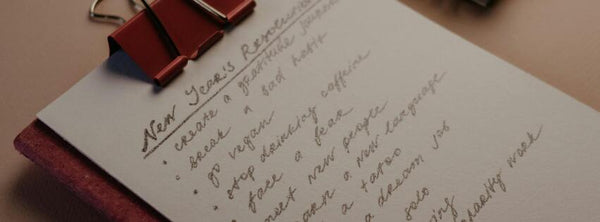 New Year's Resolutions
• create a gratitude journal
• break a bad habit
• go vegan
• stop drinking caffeine
• face a fear
meet new people
learn a new language
a tatoo
a dream job
solo
charity work